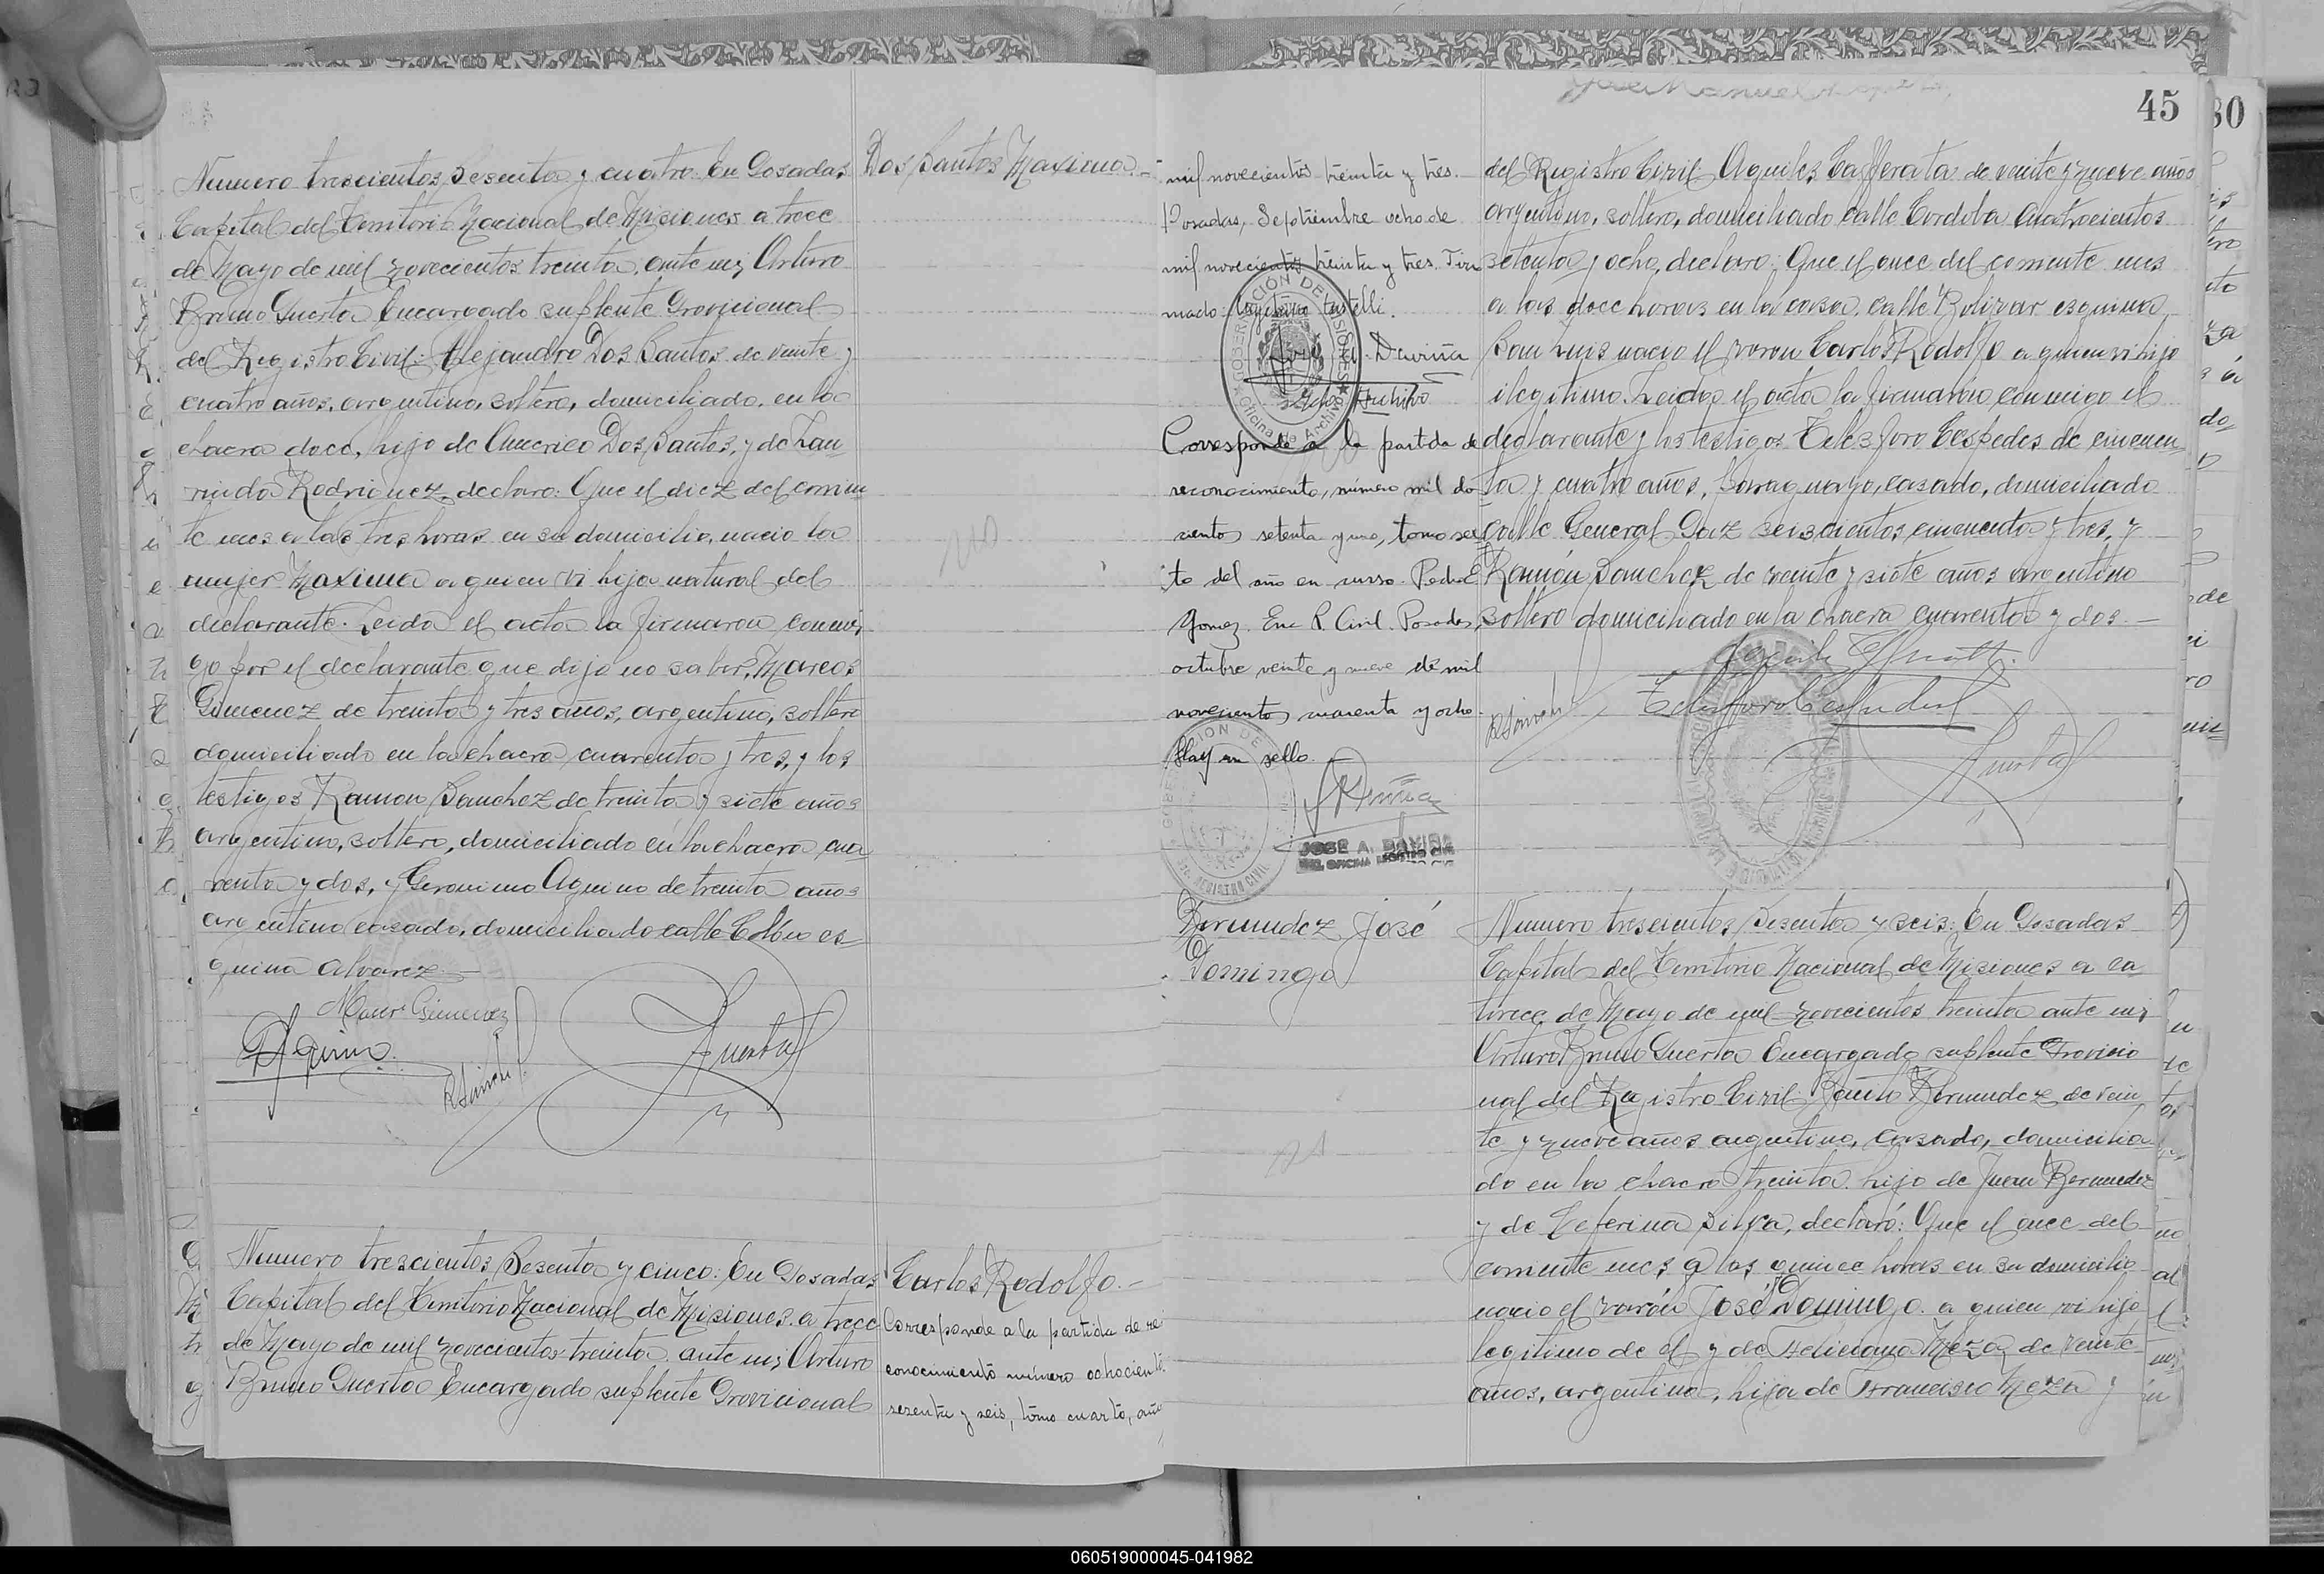 Numero trescientos Sesenta y cuatro: En Posadas
Capital del Territorio Nacional de Misiones a trece
de Mayo de mil novecientos treinta, ante mi Arturo
Bruno Puerta Encargado suplente Provicional
del Registro Civil: Alejandro Dos Santos de veinte y
cuatro años, argentino, soltero, domiciliado, en la
chacra doce, hijo de Americo Dos Santos, y de Lau-
rinda Rodriguez, declaro: Que el diez del corrien
te mes a las tres horas en su domicilio, nacio la
mujer Maxima a quien vi hija natural del
declarante. Leida el acta la firmaron conmi-
go por el declarante que dijo no saber, Marcos
Gimenez de treinta y tres años, argentino, soltero
domiciliado en la chacra cuarenta y tres, y los
testigos Ramon Sanchez de treinta y siete años
argentino, soltero, domiciliado en la chacra cua
renta y dos, y Geronimo Aquino de treinta años
argentino casado, domiciliado calle Colón es-
quina Alvarez.—
Marc Gimenez
Aquino
Puerta
Dos Santos Maxima.—
Numero trescientos Sesenta y cinco: En Posadas
Capital del Territorio Nacional de Misiones a trece
de Mayo de mil novecientos treinta ante mi Arturo
Bruno Puerta Encargado suplente Provicional
Carlos Rodolfo.—
Corresponde a la partida de re
conocimiento número ochociento
sesenta y seis, tomo cuarto, año
45
30
mil novecientos treinta y tres.—
Posadas, Septiembre ocho de
mil novecientos treinta y tres. Fir
mado:
Daviña
Archivo
GOBERNACIÓN DE MISIONES
Oficina de Archivo
Corresponde a la partida de
reconocimiento, número mil dos
cientos setenta y uno, tomo sex
to del año en curso. Pedro E
Gomez. Enc R. Civil. Posadas,
octubre veinte y nueve de mil
novecientos cuarenta y ocho.
Hay un sello.
JOSE A. DAVIÑA
del Registro Civil Aquiles Cafferata de veinte y nueve años
argentino, soltero, domiciliado calle Cordoba Cuatrocientos
setenta y ocho, declaro: Que el once del corriente mes
a las doce horas en la casa calle Bolivar esquina
San Luis nacio el varon Carlos Rodolfo a quien vi hijo
ilegitimo. Leida el acta la firmaron conmigo el
declarante y los testigos Telesforo Cespedes de cincuen
ta y cuatro años, paraguayo, casado, domiciliado
calle General Paz seiscientos cincuenta y tres, y
Ramón Sanchez de veinte y siete años argentino
soltero domiciliado en la chacra cuarenta y dos.—
Telesforo Cespedes
Puerta
Bermudez José
Domingo
Numero trescientos Sesenta y seis: En Posadas
Capital del Territorio Nacional de Misiones a ca
torce de Mayo de mil novecientos treinta ante mi
Arturo Bruno Puerta Encargado suplente Provicio
nal del Registro Civil: Benito Bermudez de vein
te y nueve años argentino, casado, domicilia
do en la chacra treinta hijo de Juan Bermudez
y de Ceferina Silva, declaró: Que el once del
corriente mes a las quince horas en su domicilio
nacio el varón José Domingo a quien vi hijo
legitimo de el y de Feliciana Meza de veinte
años, argentina, hija de Francisco Meza y
060519000045-041982